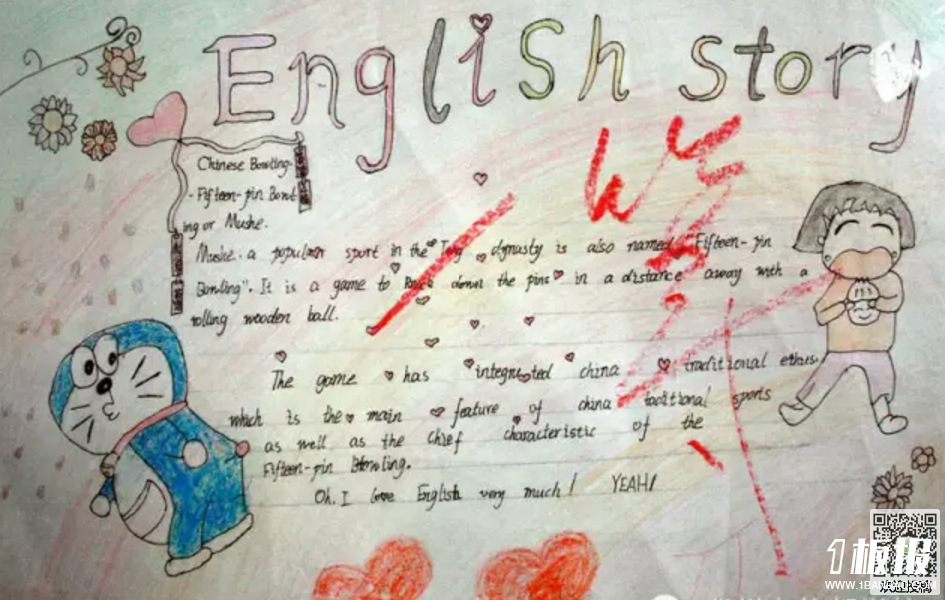 English story
Chinese Bowling-
-Fifteen-pin Bowl
ing or Mushe.
Mushe. a popular sport in the Tang dynasty is also named "Fifteen-pin
Bowling". It is a game to knock down the pins in a distance away with a
rolling wooden ball.
The game has integrated china traditional ethics.
which is the main feature of china traditional sports
as well as the chief characteristic of the
Fifteen-pin Blowling.
Oh. I love English very much! YEAH!
1板报
WWW.1BANBAO.COM